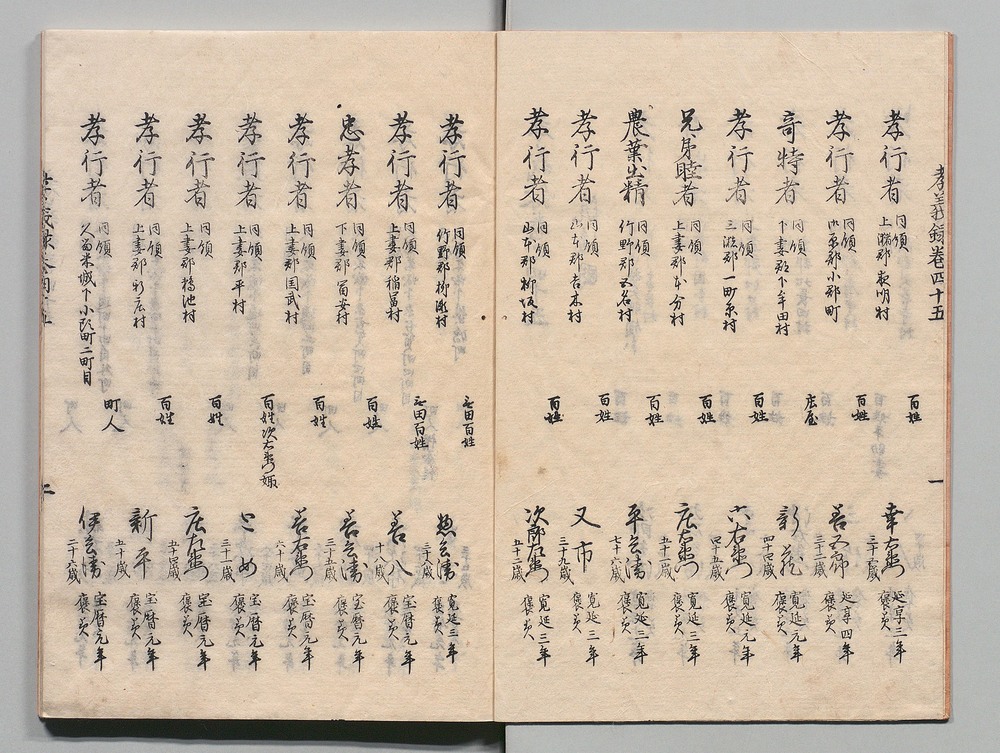 孝義録巻四十五
一
孝行者 同領 上妻郡 夜明村 百姓 幸右衛門 三十六歳 延享三年 褒美
孝行者 同領 御原郡小郡町 百姓 善五郎 延享四年 褒美
奇特者 同領 下妻郡下牟田村 庄屋 新蔵 四十四歳 寛延元年 褒美
孝行者 同領 三潴郡一町原村 百姓 六右衛門 四十五歳 寛延元年 褒美
兄弟睦者 同領 上妻郡本分村 百姓 庄右衛門 五十二歳 寛延三年 褒美
農業出精 同領 竹野郡五名村 百姓 平兵衛 七十六歳 寛延三年 褒美
孝行者 同領 山本郡吉木村 百姓 又市 三十九歳 寛延三年 褒美
孝行者 同領 山本郡柳坂村 百姓 次郎右衛門 五十二歳 寛延三年 褒美
孝行者 同領 竹野郡柳瀬村 無田百姓 惣兵衛 三十八歳 寛延三年 褒美
孝行者 同領 上妻郡稲冨村 無田百姓 善八 十八歳 宝暦元年 褒美
忠孝者 同領 下妻郡冨安村 百姓 善兵衛 三十五歳 宝暦元年 褒美
孝行者 同領 上妻郡国武村 百姓 善右衛門 六十歳 宝暦元年 褒美
孝行者 同領 上妻郡平村 百姓次右衛門娵 とめ 三十一歳 宝暦元年 褒美
孝行者 同領 上妻郡鵜池村 百姓 庄右衛門 五十四歳 宝暦元年 褒美
孝行者 同領 上妻郡新庄村 百姓 新平 五十歳 宝暦元年 褒美
孝行者 同領 久留米城下小頭町二町目 町人 伊兵衛 二十六歳 宝暦元年 褒美